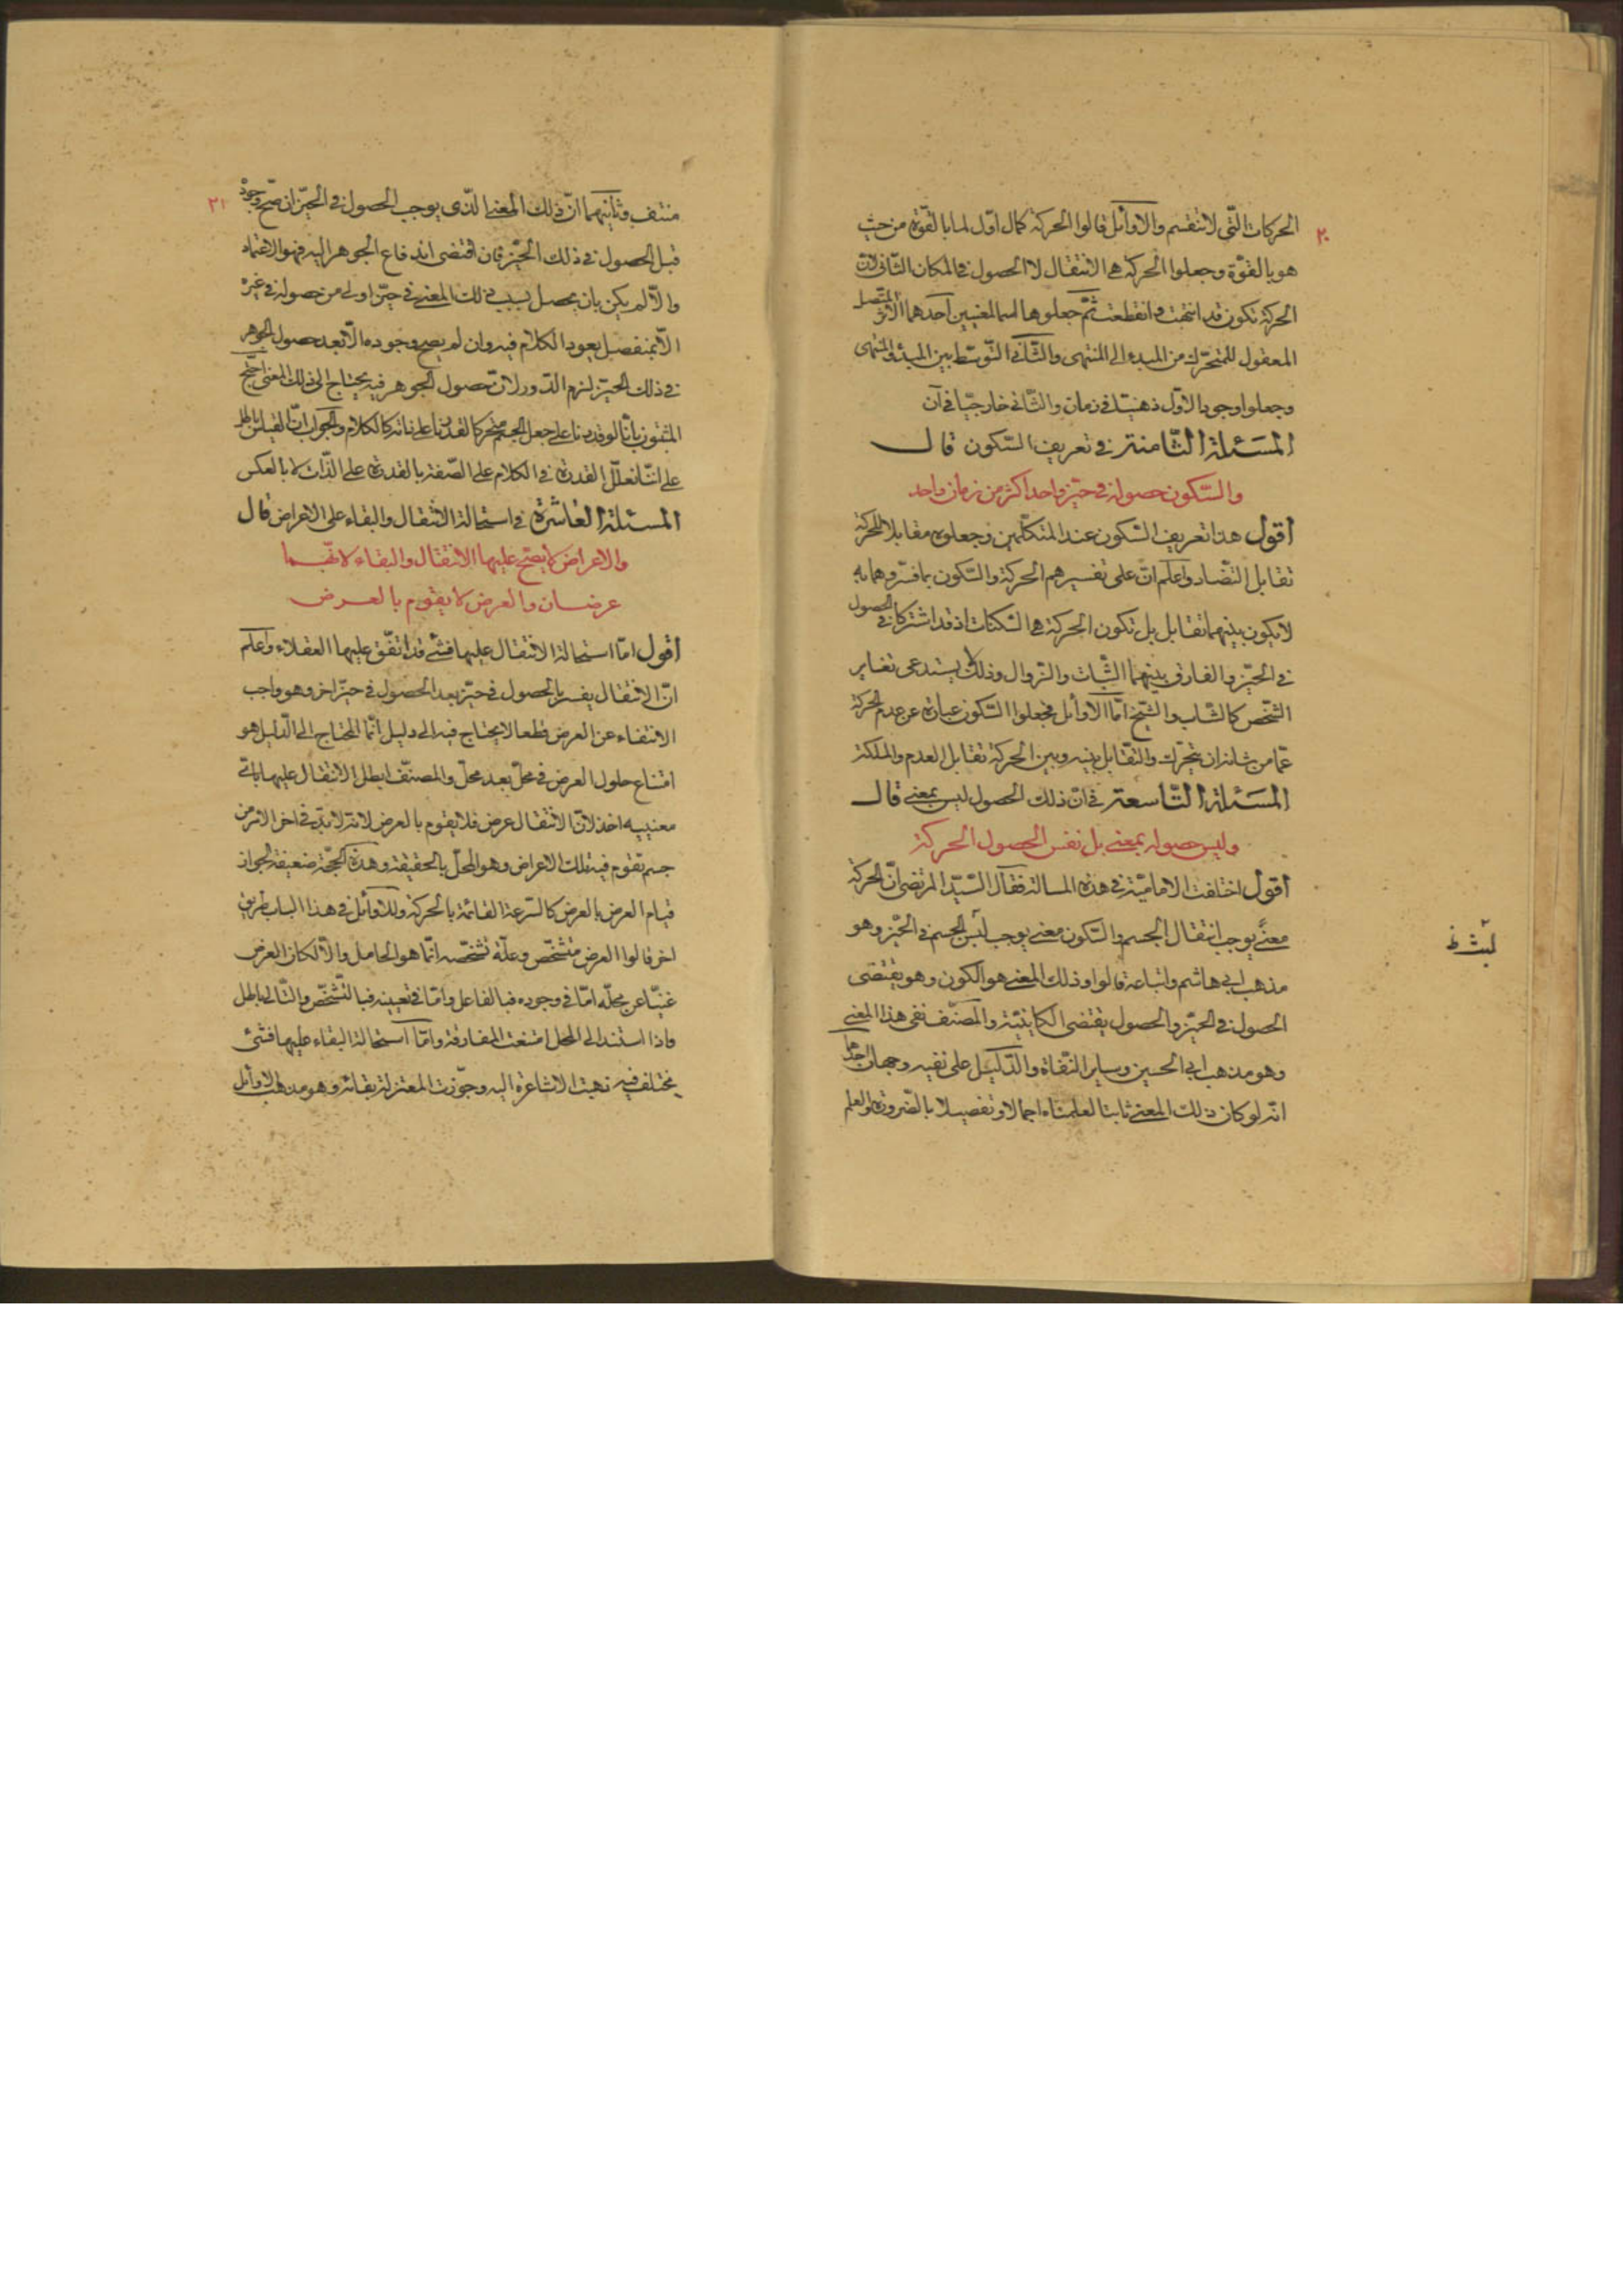 ٢٠
الحركات الّتى لا تنقسم والاوائل قالوا الحركة كمال اوّل لما بالقوّة من حيث
هو بالقوّة وجعلوا الحركة هى الانتقال لا الحصول فى المكان الثّانى لانّ
الحركة تكون قد انتهت وانقطعت ثمّ جعلوها اسما لمعنيين احدهما الامر المتّصل
المعقول للمتحرّك من المبدء الى المنتهى والثّانى التّوسّط بين المبدء والمنتهى
وجعلوا وجود الاوّل ذهنيّا فى زمان والثّانى خارجيّا فى آن
المسَئلة الثّامنة فى تعريف السّكون قال
والسّكون حصوله فى حيّز واحد اكثر من زمان واحد
أقول هذا تعريف السّكون عند المتكلّمين وجعلوه مقابلا للحركة
تقابل التّضاد واعلم انّ على تفسيرهم الحركة والسّكون بما فسّروهما به
لا يكون بينهما تقابل بل تكون الحركة هى السّكنات اذ قد اشتركا فى الحصول
فى الحيّز والفارق بينهما الثّبات والزّوال وذلك لا يستدعى تغاير
الشّخص كالشّاب والشّيخ امّا الاوائل فجعلوا السّكون عبارة عن عدم الحركة
عمّا من شانه ان يتحرّك والتّقابل بينه وبين الحركة تقابل العدم والملكة
المسَئلة التّاسعة فى انّ ذلك الحصول ليس بمعنى قال
وليس حصوله بمعنى بل نفس الحصول الحركة
أقول اختلفت الاماميّة فى هذه المسالة فقال السّيّد المرتضى انّ الحركة
معنًى يوجب انتقال الجسم والسّكون معنى يوجب لبث الجسم فى الحيّز وهو
لبث ظ
مذهب ابى هاشم واتباعه قالوا وذلك المعنى هو الكون وهو يقتضى
الحصول فى الحيّز والحصول يقتضى الكاينيّة والمصنّف نفى هذا المعنى
وهو مذهب ابى الحسين وساير النّفاة والدّليل على نفيه وجهان احدهما
انّه لو كان ذلك المعنى ثابتا لعلمناه اجمالا وتفصيلا بالضّرورة والعلم
٢١
منتف وثانيهما انّ ذلك المعنى الّذى يوجب الحصول فى الحيّز ان صحّ وجوده
قبل الحصول فى ذلك الحيّز فان اقتضى اندفاع الجوهر اليه فهو الاعتماد
والّا لم يكن بان يحصل بسبب ذلك المعنى فى حيّز اولى من حصوله فى غيره
الّا بمنفصل يعود الكلام فيه وان لم يصح وجوده الّا بعد حصول الجوهر
فى ذلك الحيّز لزم الدّور لانّ حصول الجوهر فيه يحتاج الى ذلك المعنى احتجّ
المثبتون بانّا لو قدرنا على جعل الجسم متحركا لقدرنا على ذاته كالكلام والجواب انّ القياس باطل
على انّا نعلّل القدرة فى الكلام على الصّفة بالقدرة على الذّات لا بالعكس
المسئلة العاشرة فى استحالة الانتقال والبقاء على الاعراض قال
والاعراض لا يصحّ عليها الانتقال والبقاء لانّهما
عرضان والعرض لا يقوم بالعرض
أقول امّا استحالة الانتقال عليها فشئ قد اتّفق عليها العقلاء واعلم
انّ الانتقال يفسر بالحصول فى حيّز بعد الحصول فى حيّز اخر وهو واجب
الانتفاء عن العرض قطعا لا يحتاج فيه الى دليل انّما المحتاج الى الدّليل هو
امتناع حلول العرض فى محلّ بعد محلّ والمصنّف ابطل الانتقال عليها باىّ
معنييه اخذ لانّ الانتقال عرض فلا يقوم بالعرض لانّه لا بدّ فى اخر الامر من
جسم تقوم فيه تلك الاعراض وهو المحلّ بالحقيقة وهذه الحجّة ضعيفة لجواز
قيام العرض بالعرض كالسّرعة القائمة بالحركة وللاوائل فى هذا الباب طريق
اخر قالوا العرض متشخّص وعلّة تشخّصه انّما هو الحامل والّا لكان العرض
غنيّا عن محلّه امّا فى وجوده فبالفاعل وامّا فى تعيينه فبالتّشخّص والتّالى باطل
واذا استند الى المحل امتنعت المفارقة وامّا استحالة البقاء عليها فشئ
يختلف فيه ذهبت الاشاعرة اليه وجوّزت المعتزلة بقائه وهو مذهب الاوائل